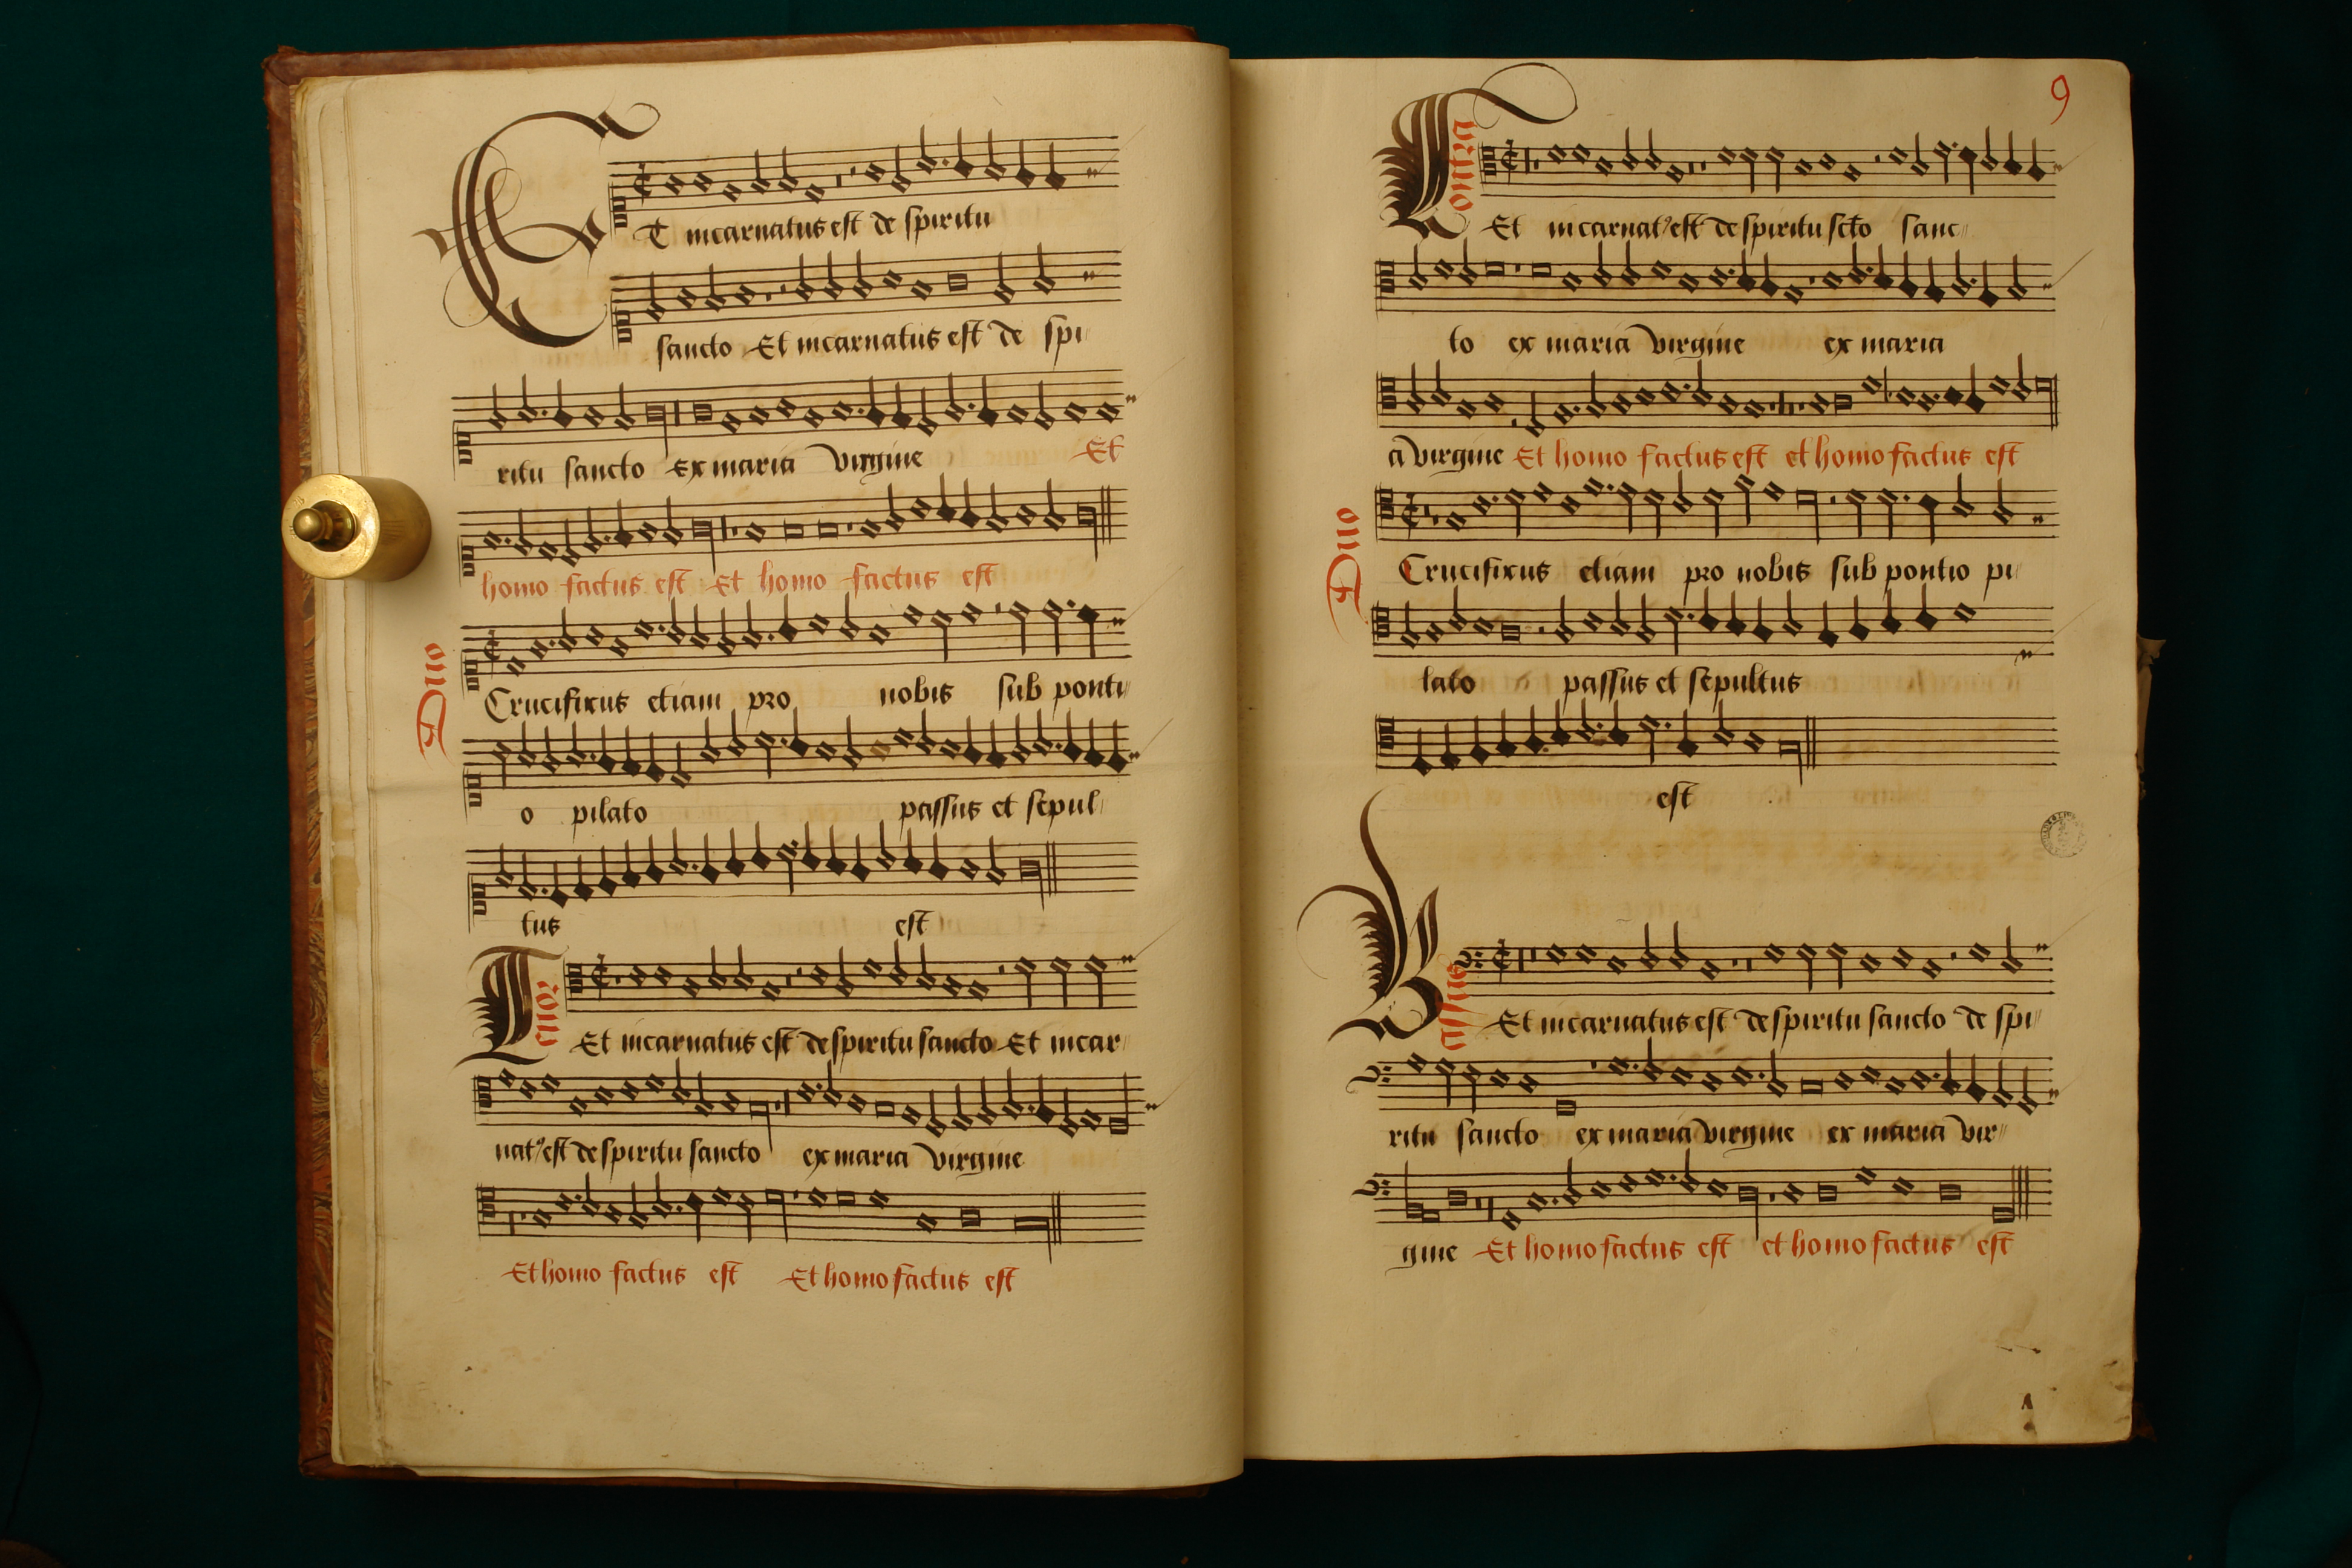 ET incarnatus est de spiritu
sancto Et incarnatus est de spi
ritu sancto Ex maria virgine Et
homo factus est Et homo factus est
Duo
Crucifixus etiam pro nobis sub ponti
o pilato passus et sepul
tus est
Tenor
Et incarnatus est de spiritu sancto Et incar
nat9 est de spiritu sancto ex maria virgine
Et homo factus est Et homo factus est
9
Contra
Et incarnat9 est de spiritu scto sanc
to ex maria virgine ex maria
a virgine Et homo factus est et homo factus est
Duo
Crucifixus etiam pro nobis sub pontio pi
lato passus et sepultus
est
Bassus
Et incarnatus est de spiritu sancto de spi
ritu sancto ex maria virgine ex maria vir
gine Et homo factus est et homo factus est